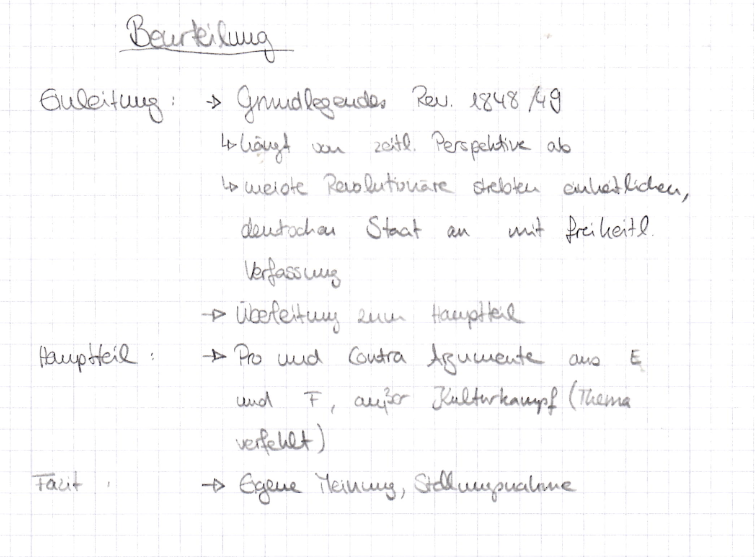 Beurteilung
Einleitung: → Grundlegendes Rev. 1848/49
↳ hängt von zeitl. Perspektive ab
↳ meiste Revolutionäre strebten einheitlichen,
deutschen Staat an mit freiheitl.
Verfassung
→ Überleitung zum Hauptteil
Hauptteil: → Pro und Contra Argumente aus E
und F, außer Kulturkampf (Thema
verfehlt)
Fazit: → Eigene Meinung, Stellungnahme